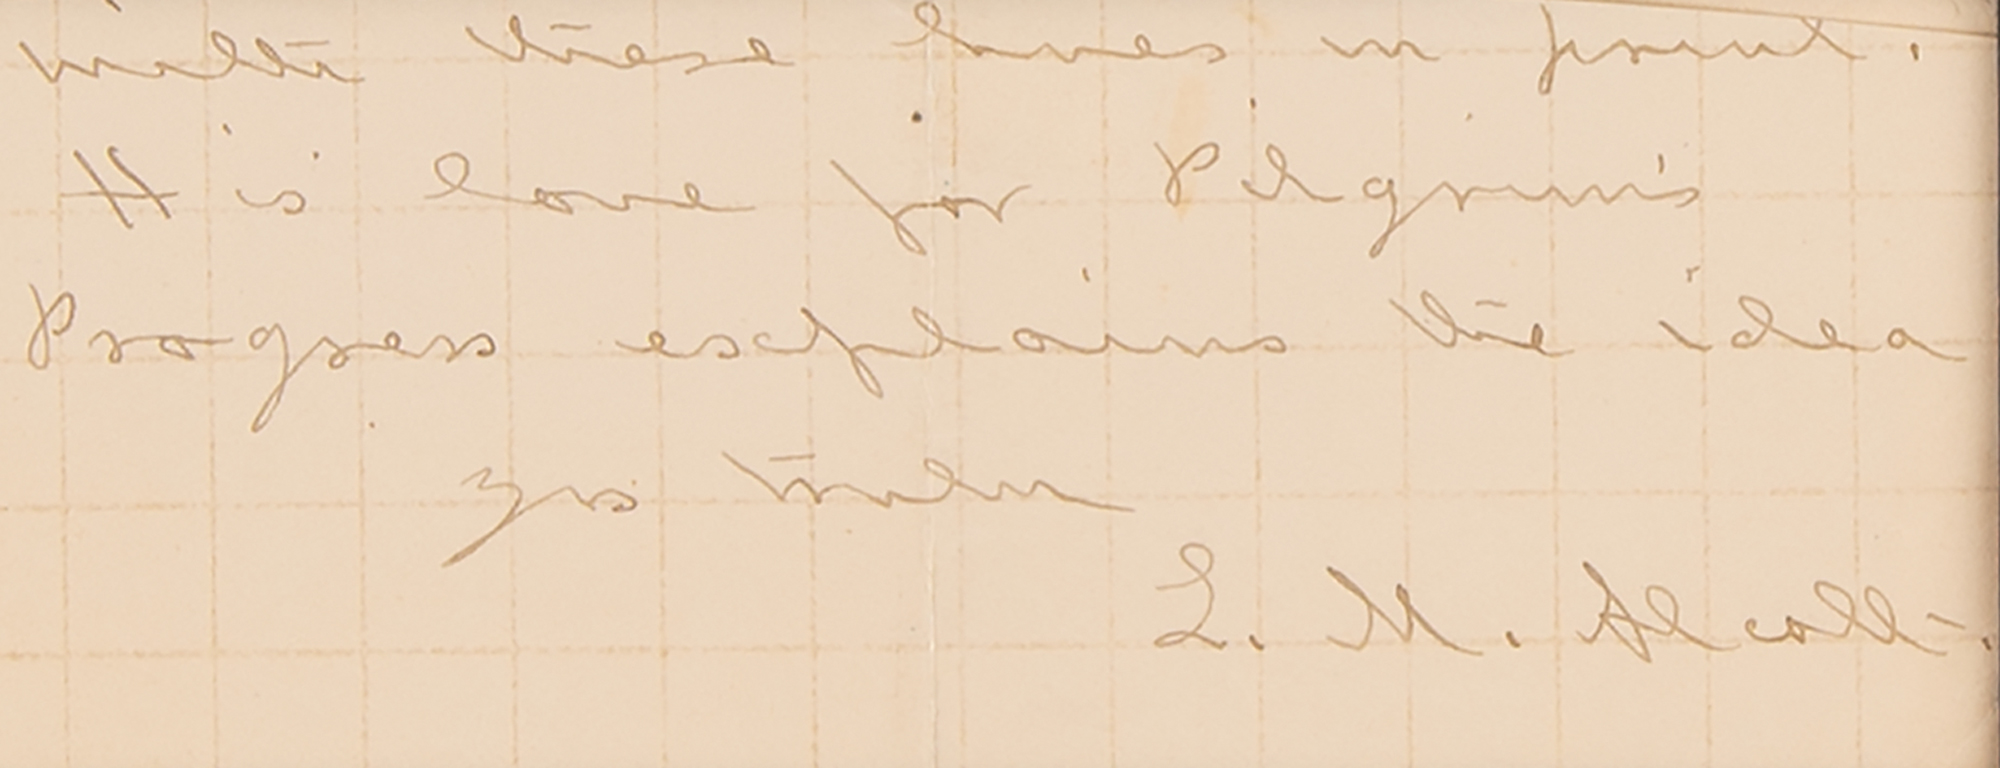 with these lines in print.
His love for Pilgrim's
Progress explains the idea
yrs truly
L. M. Alcott.